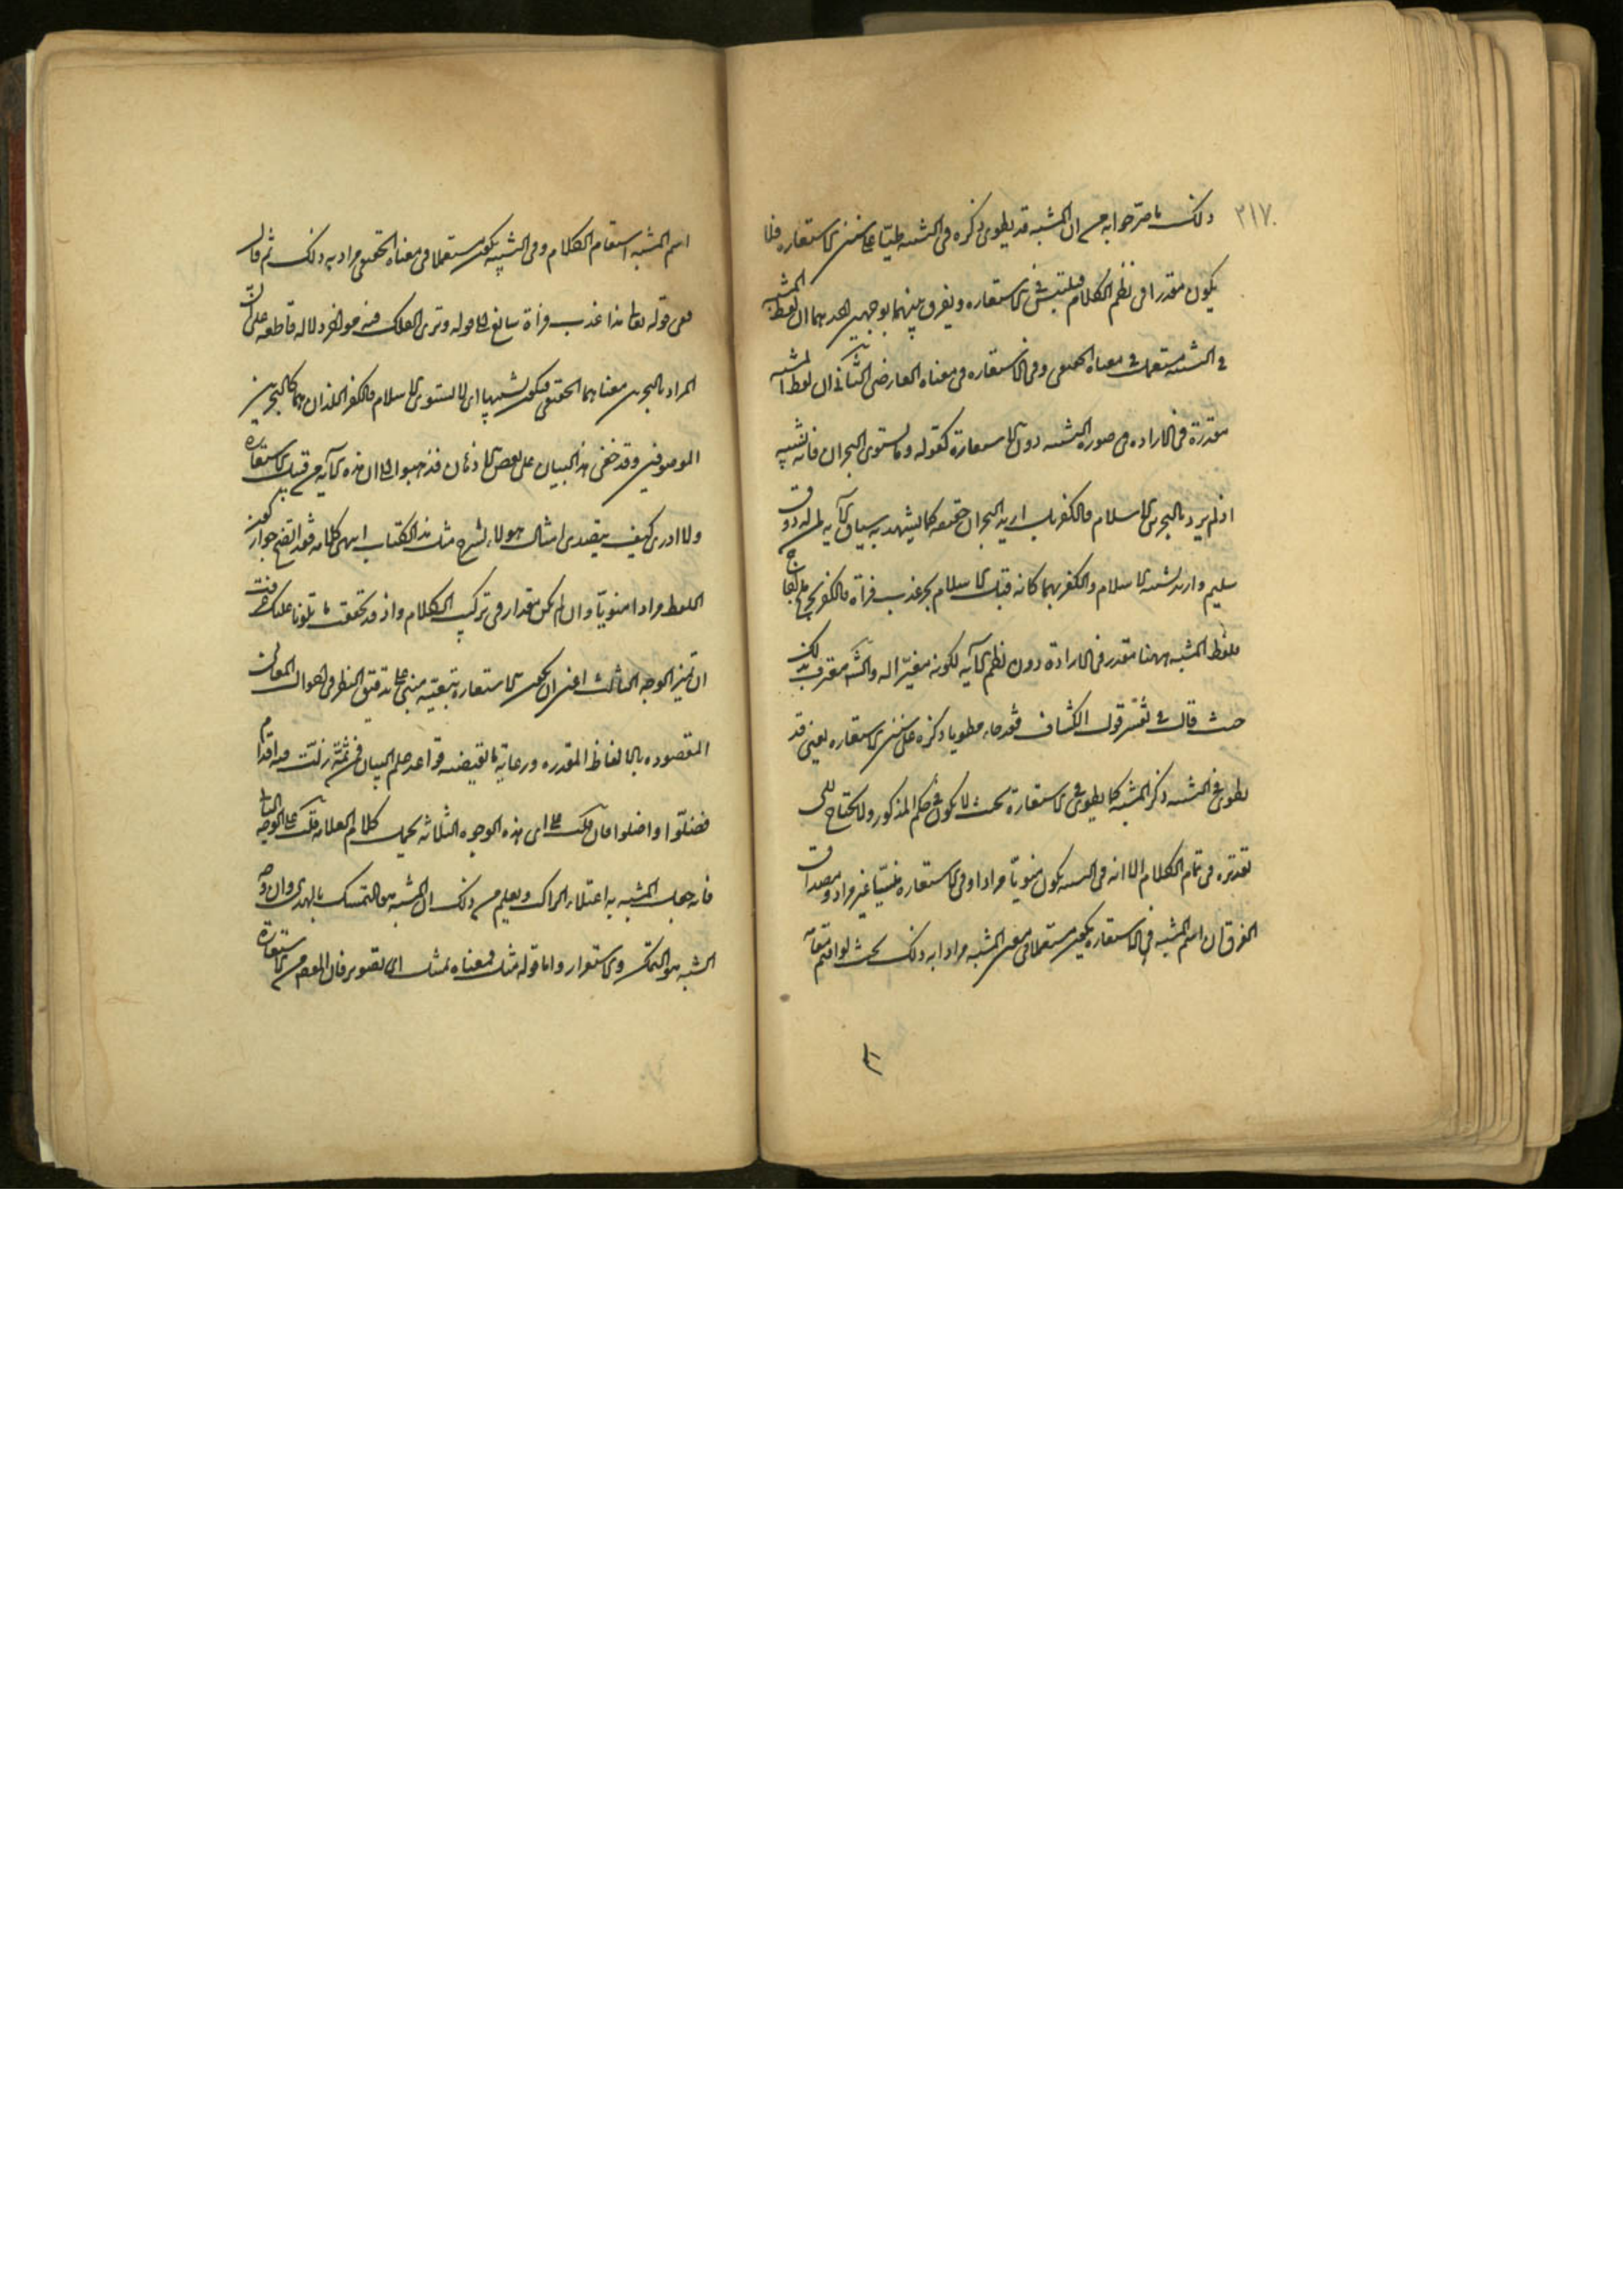 ٢١٧
ذلك ما صرحوا به من ان المشبه قد يطوى ذكره فى التشبيه طيا على سنن الاستعاره فلا
يكون مقدرا فى نظم الكلام فيلتبس بالاستعاره ويفرق بينهما بوجهين احدهما ان لفظ المشبه به
فى التشبيه مستعمل فى معناه الحقيقى وفى الاستعاره فى معناه العارضى الثانى ان لفظ المشبه
مقدرة فى الاراده فى صورة التشبيه دون الاستعارة كقوله وما يستوى البحران فانه تشبيه
اذ لم يرد بالبحرين الاسلام والكفر بل اريد البحران حقيقه كما يشهد به سياق الآيه لمن له ذوق
سليم واريد تشبيه الاسلام والكفر بهما كانه قيل الاسلام بحر عذب فرات والكفر بحر ملح اجاج
فلفظ المشبه ههنا مقدر فى الارادة دون نظم الآيه لكونه مغيرا له معترف بذلك
حيث قال فى تفسير قول الكشاف فقد جاء مطويا ذكره على سنن الاستعاره يعنى قد
يطوى فى التشبيه ذكر المشبه كما يطوى فى الاستعارة بحيث لا يكون فى حكم المذكور ولا يحتاج الى
تقديره فى تمام الكلام الا انه فى التشبيه يكون منويا مرادا وفى الاستعاره منسيا غير مراد ومصداق
الفرق ان اسم المشبه به فى الاستعاره يكون مستعملا فى معنى المشبه مرادا به ذلك بحيث لو اقيم مقامه
اسم المشبه استقام الكلام وفى التشبيه يكون مستعملا فى معناه الحقيقى مرادا به ذلك ثم قال
ففى قوله تعالى هذا عذب فرات سائغ الى قوله وترى الفلك فيه مواخر دلالة قاطعه على ان
المراد بالبحرين معناهما الحقيقى فيكون تشبيها اى لا يستوى الاسلام والكفر اللذان هما كالبحرين
الموصوفين وقد خفى هذا البيان على بعض الاذهان فذهبوا الى ان هذه الآيه من قبيل الاستعارة
ولا ادرى كيف يتصدى امثال هولاء لشرح مثل هذا الكتاب انتهى كلامه فقد اتضح جواز كون
اللفظ مرادا منويا وان لم يكن مقدرا فى تركيب الكلام واذ قد تحققت ما تلونا عليك عرفت
ان تميز الوجه الثالث اعنى ان يكون الاستعاره تبعيه مبنى على تدقيق النظر فى احوال المعانى
المقصوده بالالفاظ المقدره ورعاية ما تقتضيه قواعد علم البيان فمن ثمة زلت فيه اقدام
فضلوا واضلوا فان قلت على اى هذه الوجوه الثلاثه يحمل كلام العلامه قلت على الوجه الثالث
فانه جعل المشبه به اعتلاء الراكب ويعلم من ذلك ان المشبه هو التمسك بالهدى وان وجه
الشبه هو التمكن والاستقرار واما قوله مثل فمعناه تمثيل اى تصوير فان المقصود من الاستعارة